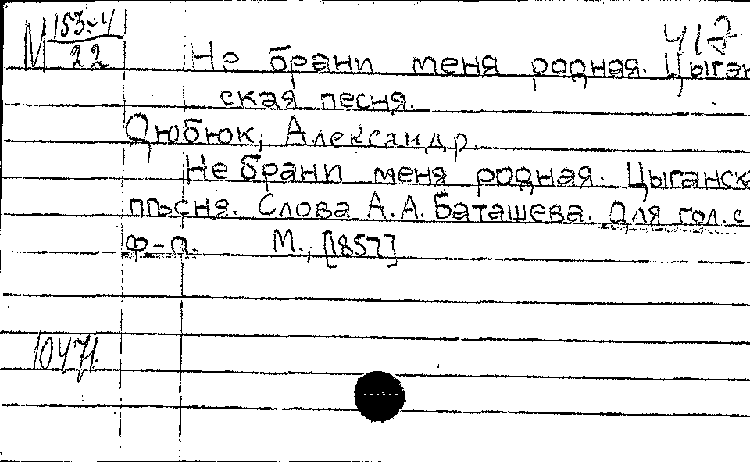 М 153-4/22
412
Не брани меня родная. Цыган
ская песня.
Дюбюк, Александр.
Не брани меня родная. Цыганск
пѣсня. Слова А.А. Баташева. Для гол. с
ф-п. М., [1857]
10471